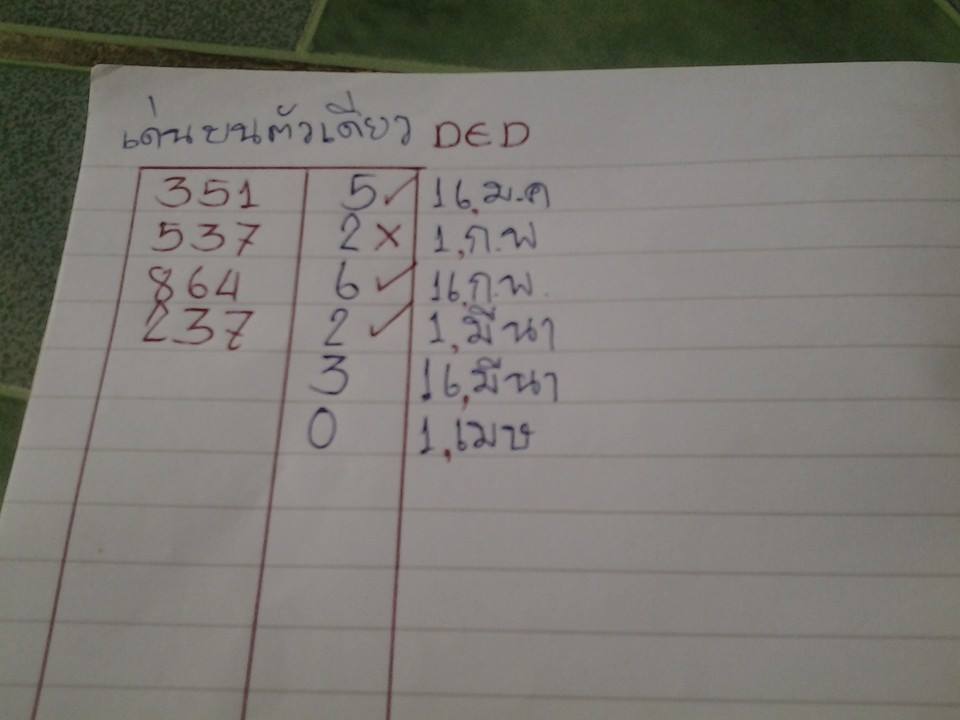 เด่นบนตัวเดียว DED
351 5✓ 16,ม.ค
537 2× 1,ก.พ
864 6✓ 16,ก.พ.
237 2✓ 1,มีนา
3 16,มีนา
0 1,เมษ